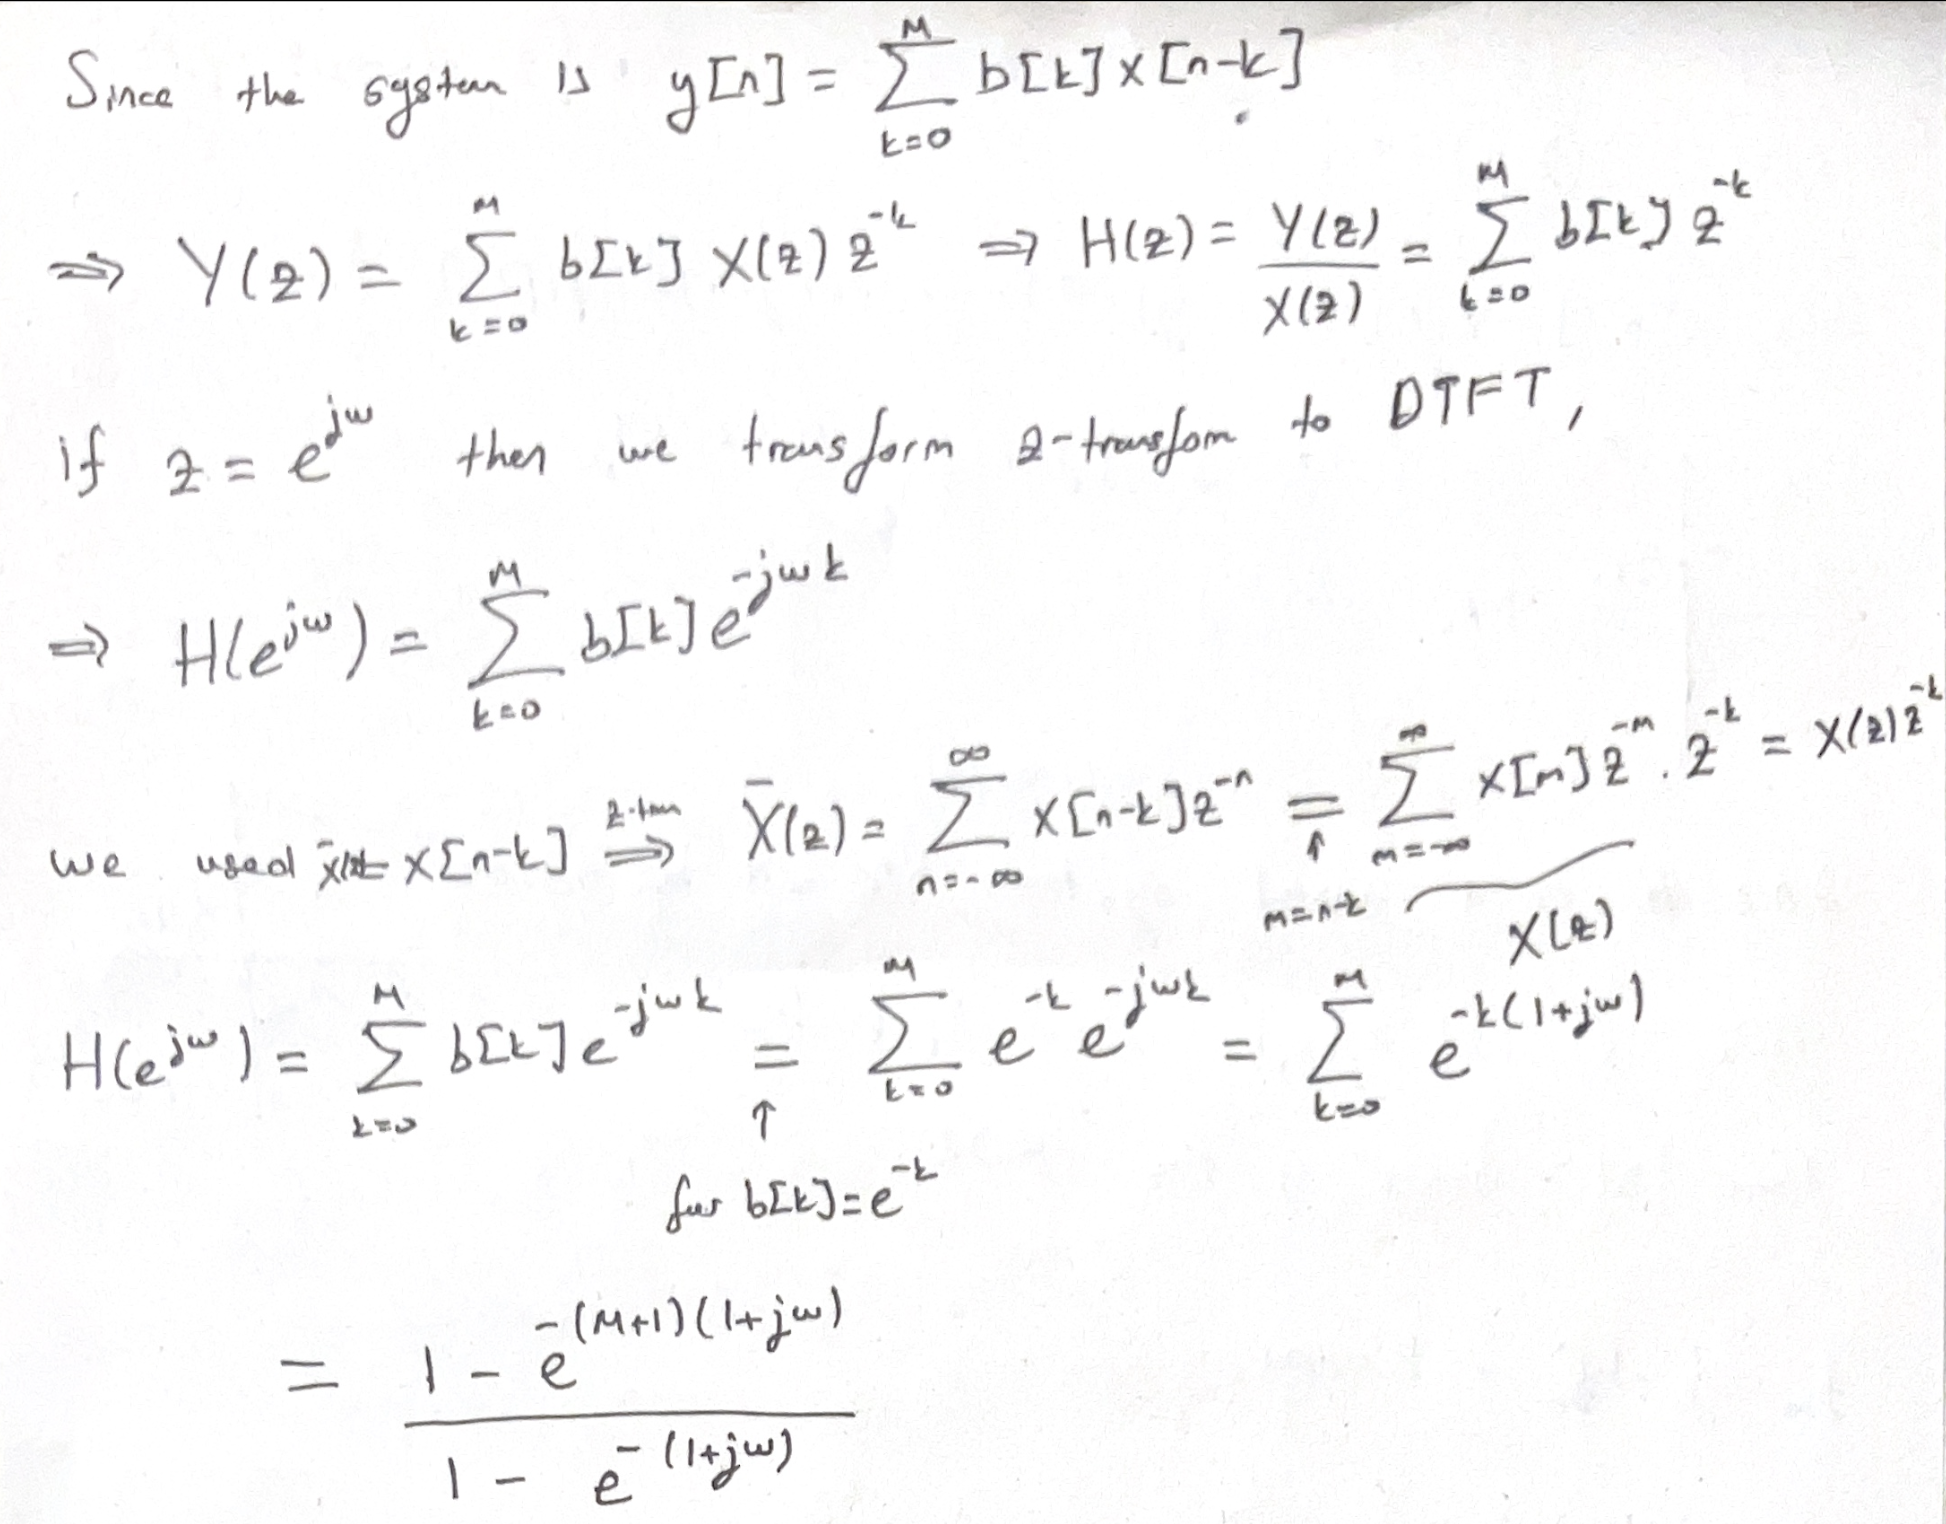 Since the system is y[n] = \sum_{k=0}^{M} b[k] x[n-k]
⇒ Y(z) = \sum_{k=0}^{M} b[k] X(z) z^{-k} ⇒ H(z) = \frac{Y(z)}{X(z)} = \sum_{k=0}^{M} b[k] z^{-k}
if z = e^{jω} then we transform z-transfom to DTFT,
⇒ H(e^{jω}) = \sum_{k=0}^{M} b[k] e^{-jωk}
we used x[n-k] \overset{z-tran}{⇒} \bar{X}(z) = \sum_{n=-∞}^{∞} x[n-k] z^{-n} \underset{\underset{m=n-k}{↑}}{=} \underbrace{\sum_{m=-∞}^{∞} x[m] z^{-m}}_{X(z)} . z^{-k} = X(z) z^{-k}
H(e^{jω}) = \sum_{k=0}^{M} b[k] e^{-jωk} \underset{\underset{for b[k]=e^{-k}}{↑}}{=} \sum_{k=0}^{M} e^{-k} e^{-jωk} = \sum_{k=0}^{M} e^{-k(1+jω)}
= \frac{1 - e^{-(M+1)(1+jω)}}{1 - e^{-(1+jω)}}